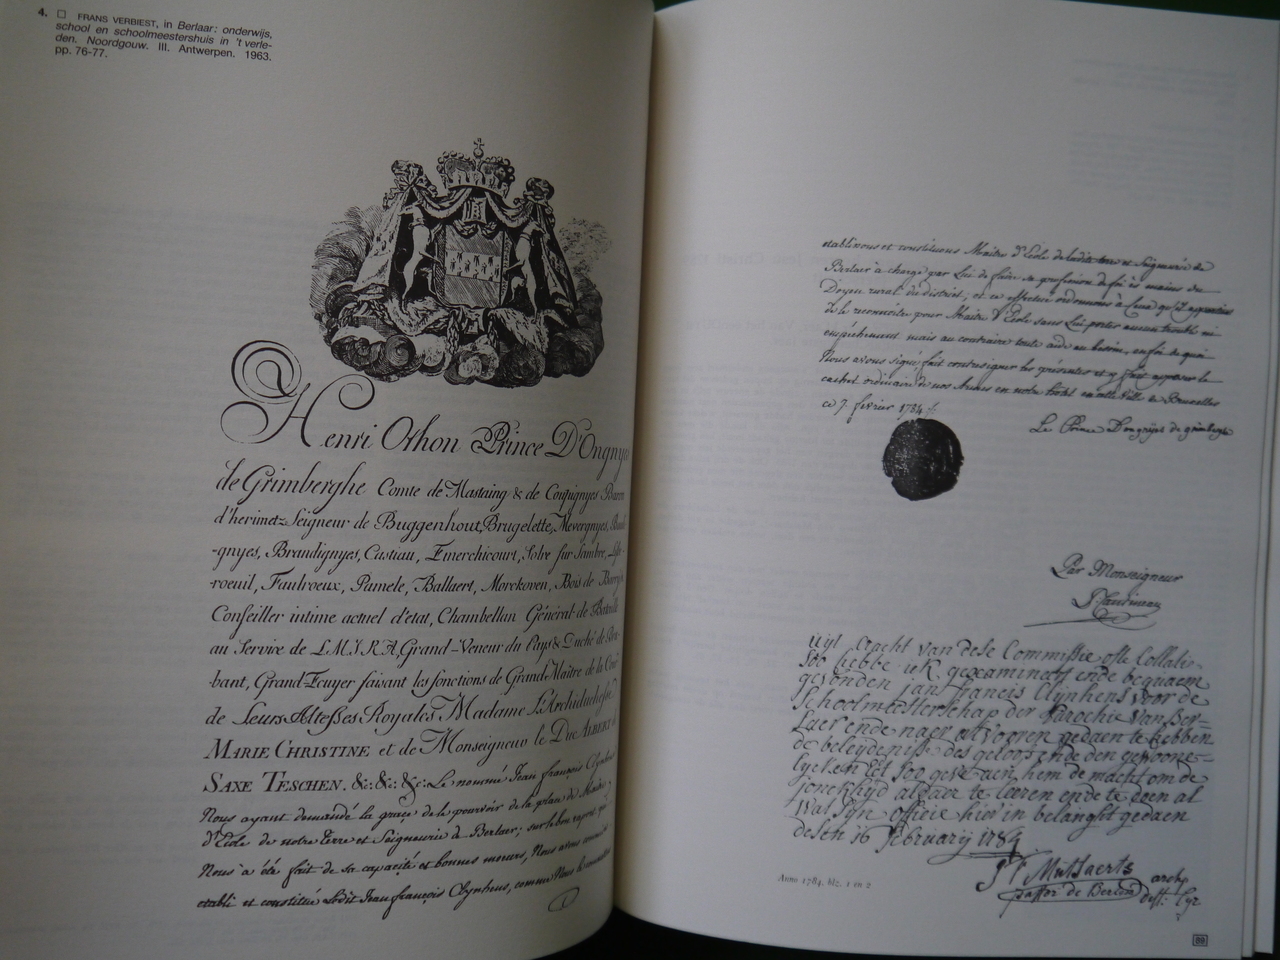 4. □ FRANS VERBIEST, in Berlaar: onderwijs,
school en schoolmeestershuis in 't verle-
den. Noordgouw. III. Antwerpen. 1963.
pp. 76-77.
Henri Othon Prince D'Ongnyes
de Grimberghe Comte de Mastaing & de Coupignyes Baron
d'herimetz Seigneur de Buggenhout, Brugelette, Mevergnyes,
-gnyes, Brandignyes, Castiau, Emerchicourt, Solre sur Sambre,
-roeuil, Faulroeux, Pamele, Ballaert, Morckoven, Bois de
Conseiller intime actuel d'état, Chambellan Général de Bataille
au Service de L.M.I.R.A, Grand-Veneur du Pays & Duché de Bra-
bant, Grand-Ecuyer faisant les fonctions de Grand Maître de la Cour
de Leurs Altesses Royales Madame L'Archiduchesse
MARIE CHRISTINE et de Monseigneur le Duc ALBERT de
SAXE TESCHEN. &c: &c: &c: Le nommé Jean françois Clynhens
Nous ayant demandé la grace de le pourvoir de la place de Maitre
d'Ecole de notre Terre et Seigneurie de Berlaer; sur le bon raport qui
Nous à été fait de sa capacité et bonnes moeurs, Nous avons commis
établi et constitué ledit Jean françois Clynhens, comme Nous le commettons
1
établissons et constituons Maitre d'Ecole de ladite terre et Seigneurie de
Berlaer à charge par Lui de faire sa profession de foi ès mains du
Doyen rural du district, et en effectuer ordonnons à Ceux qu'Il appartient
de le reconnoitre pour Maitre d'Ecole sans Lui porter aucun trouble ni
empêchement mais au contraire toute aide au besoin, en foi de quoi
Nous avons signé, fait contresigner les présentes et y fait apposer le
cachet ordinaire de nos Armes en notre hotel en cette Ville de Bruxelles
ce 7. fevrier 1784
Le Prince D'ongnyes de grimberghe
Par Monseigneur
uijt cracht van dese Commissie ofte Collati-
soo hebbe ick geexamineert ende bequaem
gevonden jan francis Clynhens voor de
Schoolmeesterschap der Parochie van Ber-
laer ende naer alvooren gedaen te hebben
de beleijdenisse des geloofs ende den gewoone-
lycken Eet soo geve aen hem de macht om de
jonckheijd aldaer te leeren ende te doen al
wat syn officie hier in belanght gedaen
desen 16 februarij 1784
J F Mutsaerts archp
pastor de Berlaer dist: Lyr
Anno 1784. blz. 1 en 2
89